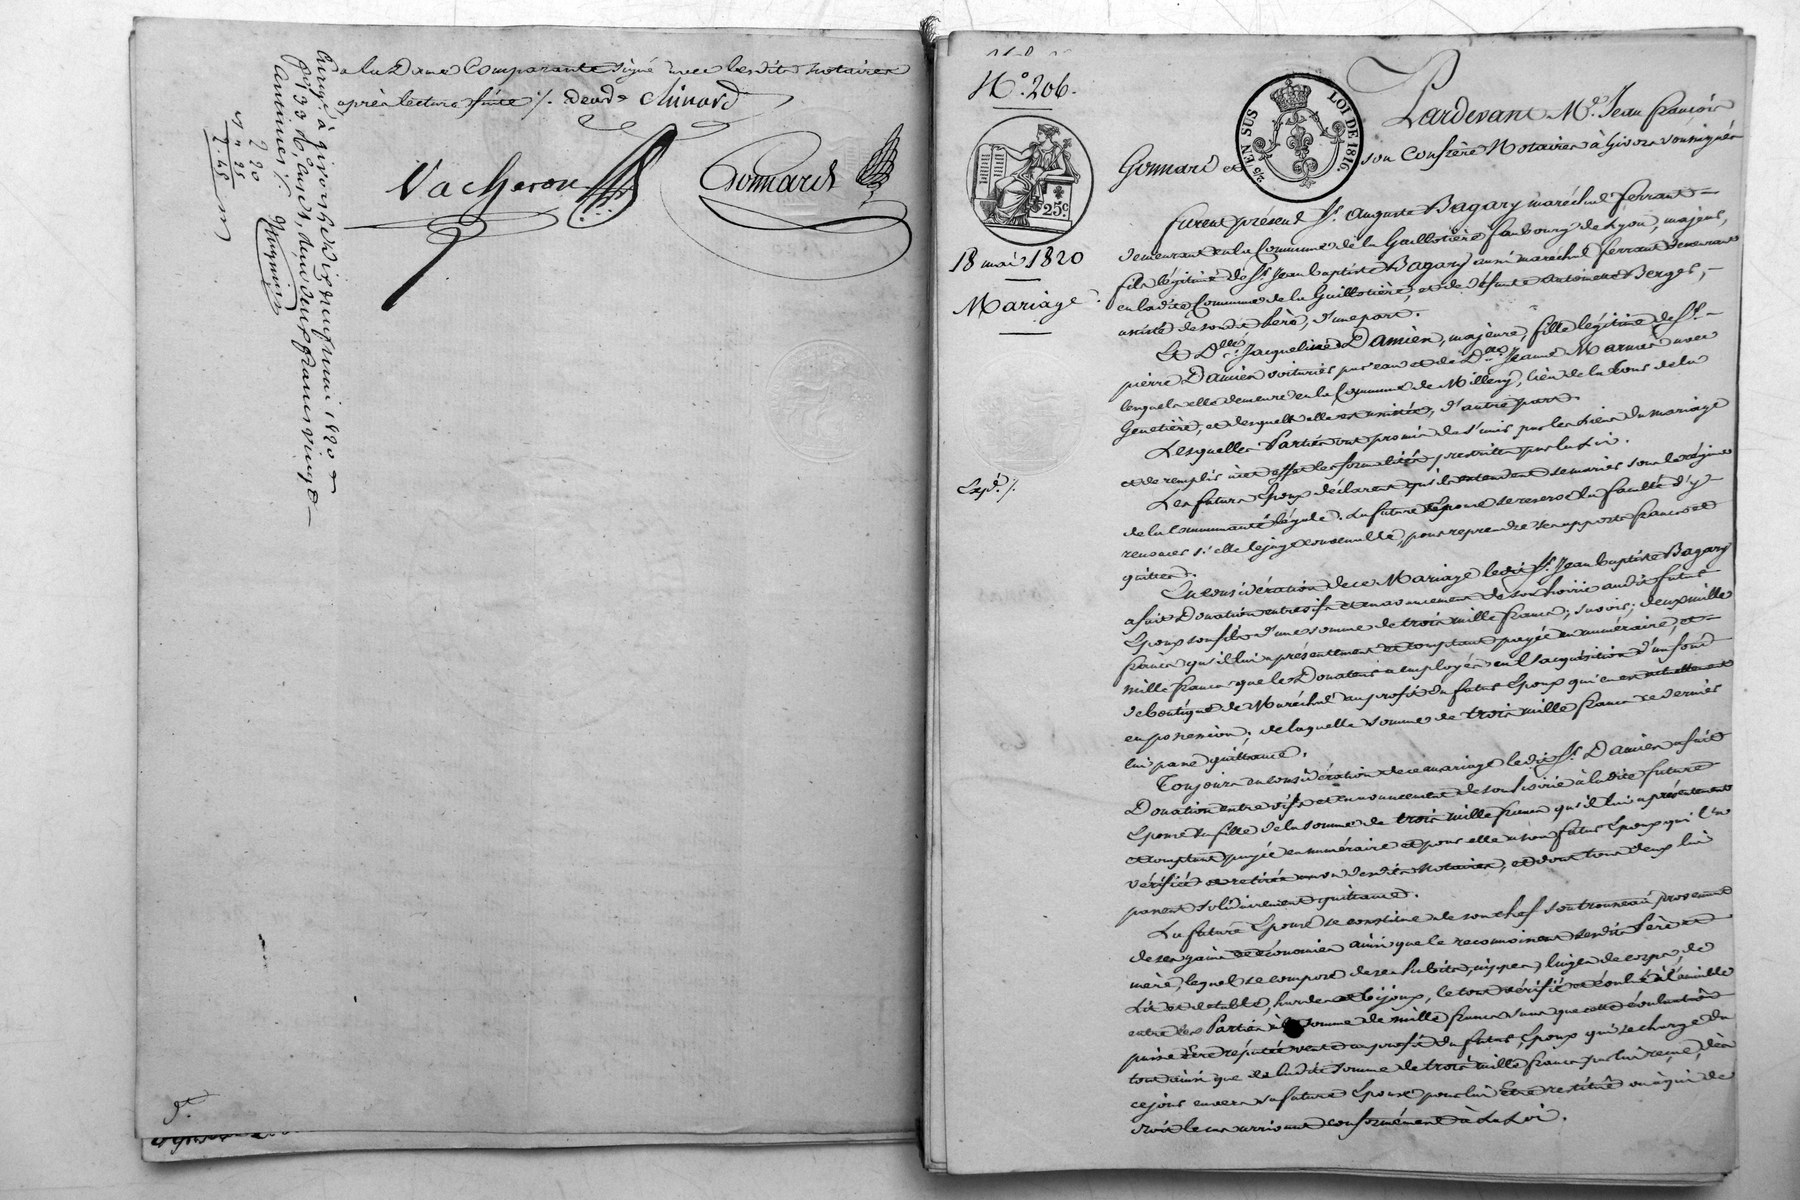 de la Dame Comparante signé avec lesdits notaires
après lecture faite /. deud e chinard
Vacheron
Gonnard
Enregé à givors le dix neuf mai 1820
f° 13 Ro Case 1, deux francs vingt
centimes /.
2 20
" 25
2.45
N.° 206.
25 c.
18 mai 1820
Mariage
Exp.e /.
25 c EN SUS
LOI DE 1816.
Pardevant M.e Jean François
Gonnard et son Confrère Notaires à Givors soussignés
Furent présens S.r Auguste Bagary maréchal ferrant
demeurant en la Commune de la Guillotière faubourg de Lyon, majeur,
fils légitime de S.r Jean baptiste Bagary aussi maréchal ferrant demeurant
en ladite Commune de la Guillotière, et de défunte Antoinette Berger,
assisté de sondit Père, d'une part.
Et D.lle Jacqueline Damien, majeure, fille légitime de S.r
pierre Damien voiturier par eau et de D.me Jeanne Marnas avec
lesquels elle demeure en la Commune de Millery, lieu de la
Genetière, et desquels elle est assistée, d'autre part.
Lesquelles Parties ont promis de s'unir par les liens du mariage
et de remplir à cet effet les formalités prescrites par la Loi.
Les futurs Epoux déclarent qu'ils entendent se marier sous le régime
de la Communauté légale. La future Epouse se reserve la faculté d'y
renoncer si elle le juge convenable, pour reprendre ses apports francs et
quittes.
En considération de ce Mariage ledit S.r Jean baptiste Bagary
a fait Donation entre vifs et en avancement de son hoirie audit futur
Epoux son fils d'une somme de trois mille francs; savoir; deux mille
francs qu'il lui a présentement et comptant payée en numéraire, et
mille francs que le Donateur a employée en l'acquisition d'un fond
de boutique de Maréchal au profit du futur Epoux qui en est actuellement
en possession; de laquelle somme de trois mille francs ce dernier
lui passe quittance.
Toujours en considération de ce mariage ledit S.r Damien a fait
Donation entre vifs et en avancement de son hoirie à ladite future
Epouse sa fille de la somme de trois mille francs qu'il lui a présentement
et comptant payée en numéraire et pour elle à son futur Epoux qui l'a
vérifiée et retirée au vu desdits Notaires, et dont tous deux lui
passent solidairement quittance.
La future Epouse se constitue de son chef son trousseau provenant
de ses gains et économies ainsi que le reconnoissent sesdits Père et
mère, lequel se compose de ses habits, nippes, linges de corps, de
Lit et de table, hardes et bijoux, le tout vérifié et évalué à l'amiable
entre les Parties à la somme de mille francs sans que cette évaluation
puisse être réputée vente au profit du futur Epoux qui se charge du
tout ainsi que de ladite somme de trois mille francs par lui reçue, dès
ce jour envers sa future Epouse pour lui être restitué ou à qui de
droit le cas arrivant conformément à la Loi.